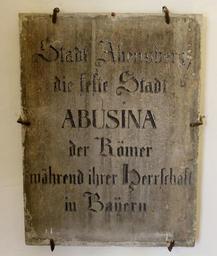 Stadt Abensberg
die feste Stadt
ABUSINA
der Römer
während ihrer Herrschaft
in Bayern